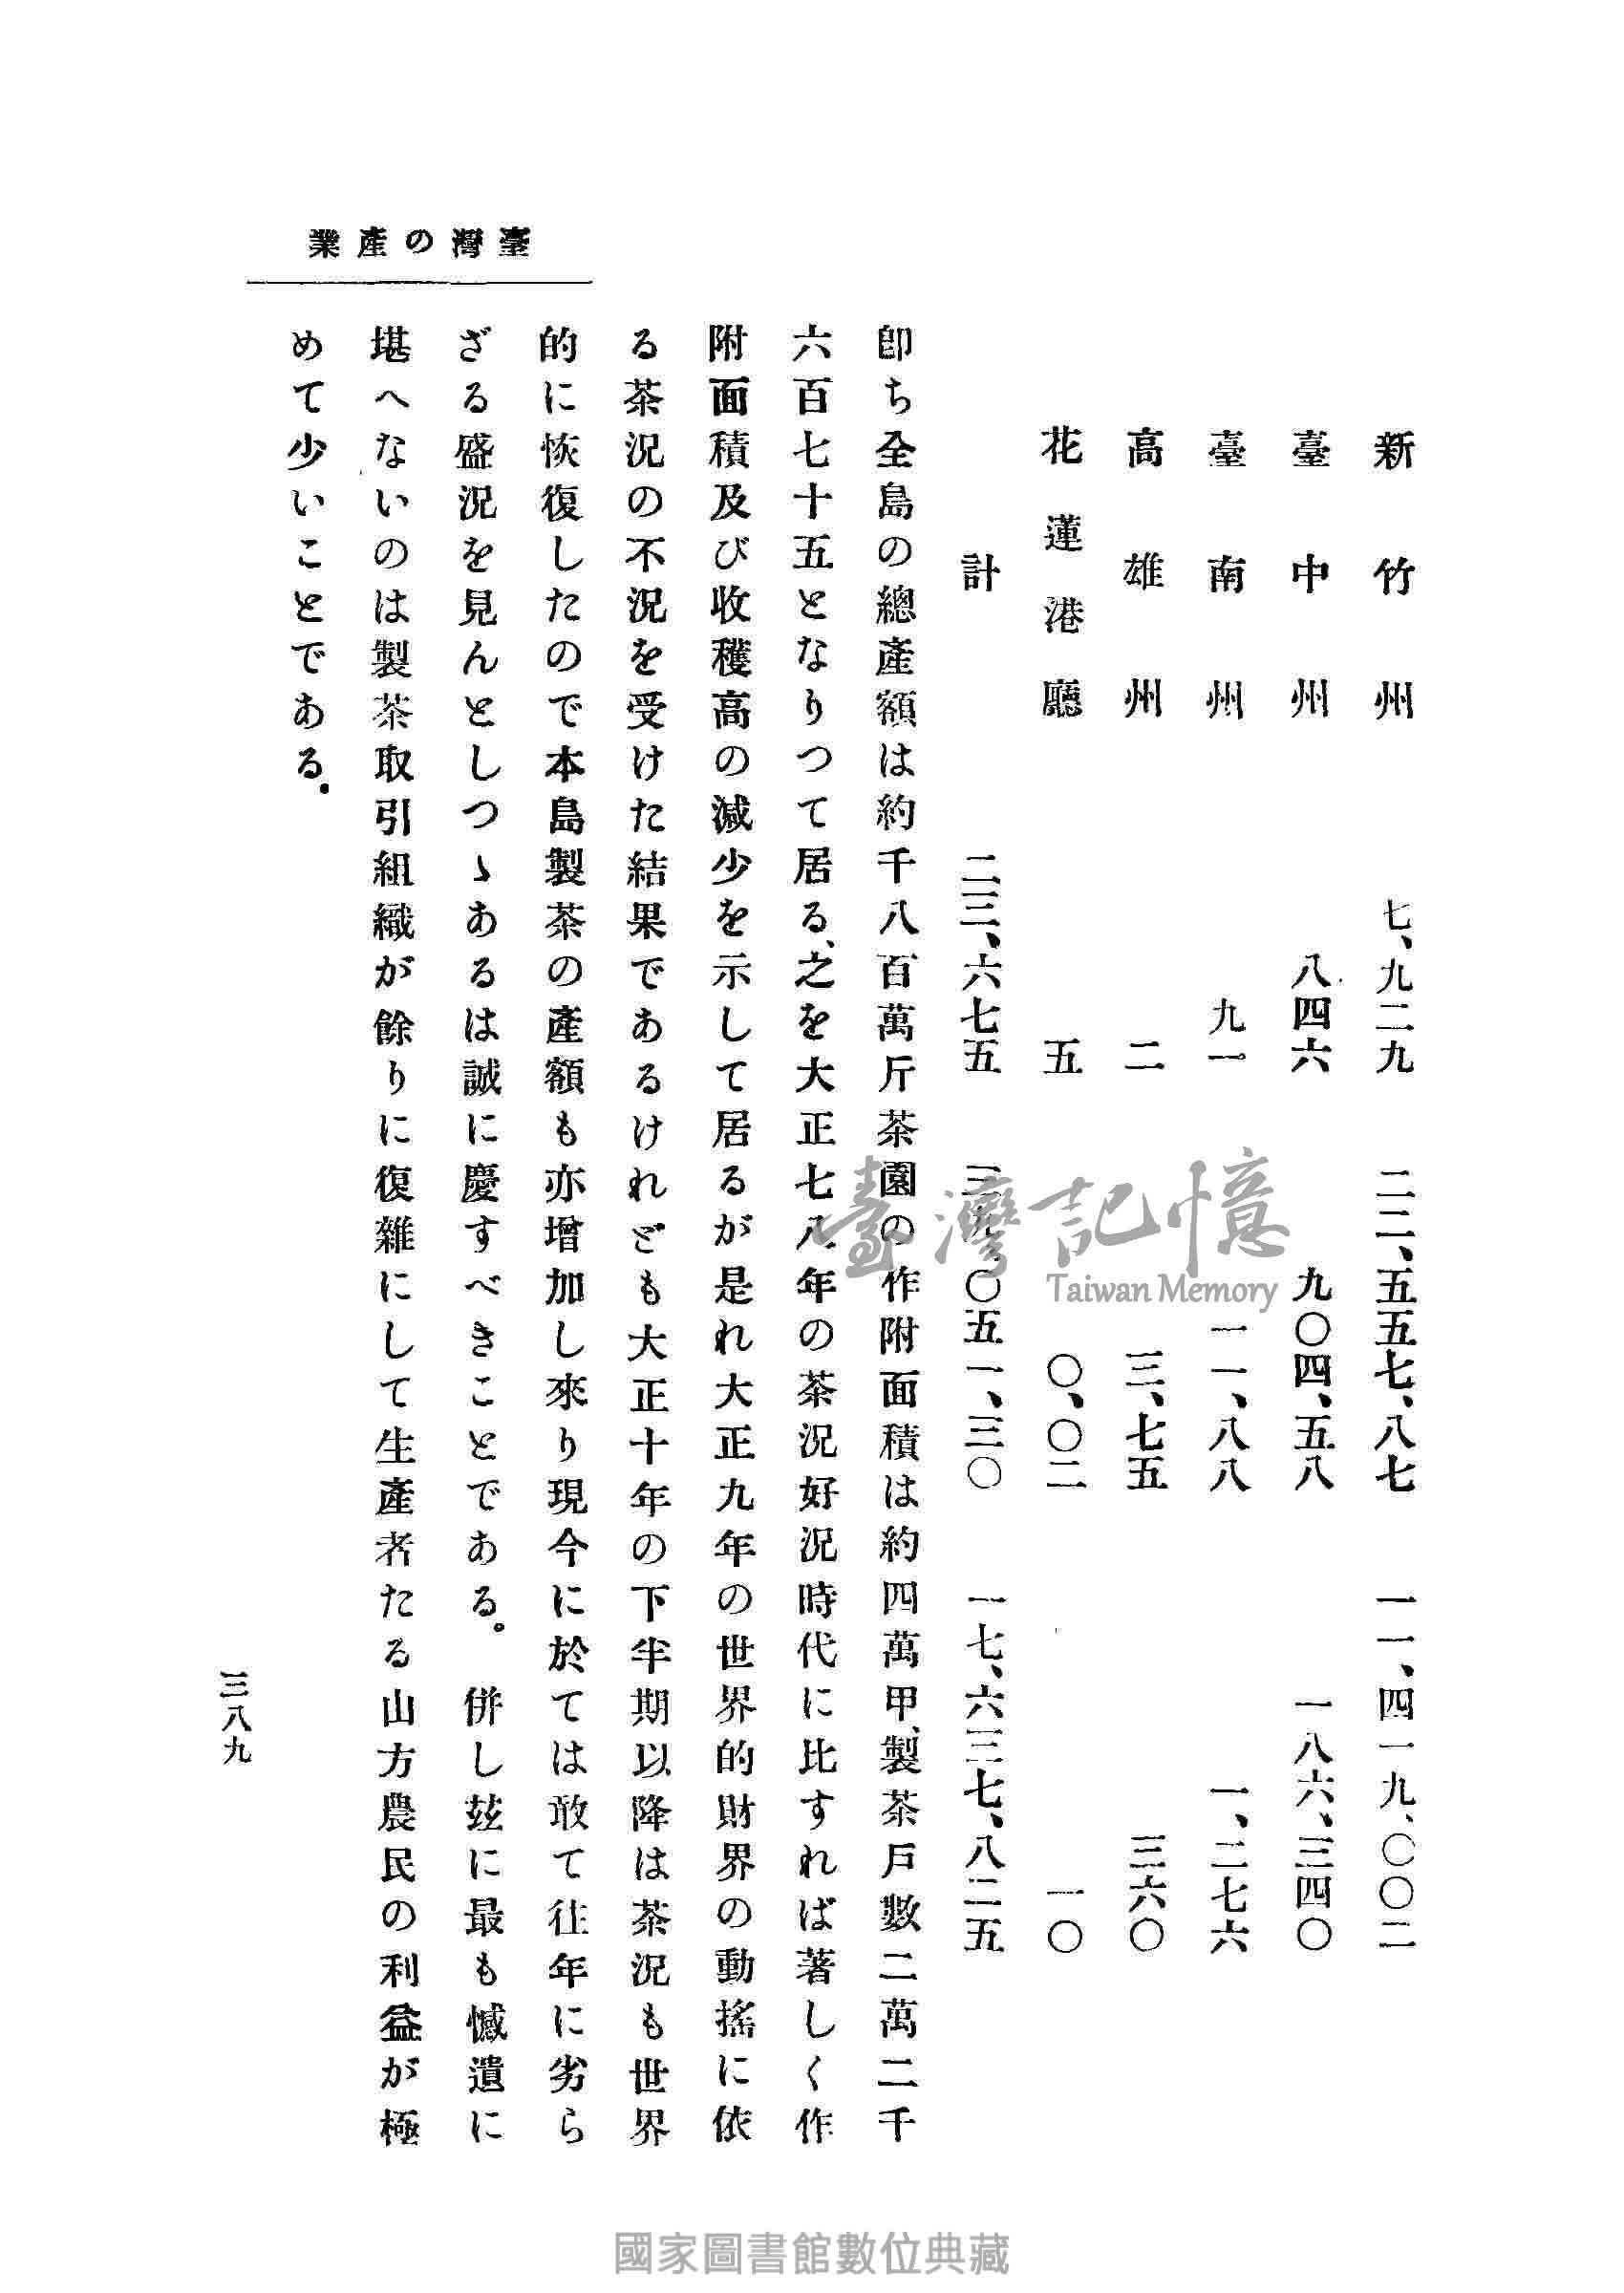 臺灣の產業
新竹州 七、九二九 二二、五五七、八七 一一、四一九、〇〇二
臺中州 八四六 九〇四、五八 一八六、三四〇
臺南州 九一 一一、八八 一、二七六
高雄州 二 三、七五 三六〇
花蓮港廳 五 〇、〇二 一〇
計 二三、六七五 三九、〇五一、三〇 一七、六三七、八二五
卽ち全島の總產額は約千八百萬斤茶園の作附面積は約四萬甲、製茶戶數二萬二千
六百七十五となりつて居る、之を大正七八年の茶況好況時代に比すれば著しく作
附面積及び收穫高の減少を示して居るが是れ大正九年の世界的財界の動搖に依
る茶況の不況を受けた結果であるけれども大正十年の下半期以降は茶況も世界
的に恢復したので本島製茶の產額も亦增加し來り現今に於ては敢て往年に劣ら
ざる盛況を見んとしつゝあるは誠に慶すべきことである。併し玆に最も憾遺に
堪へないのは製茶取引組織が餘りに復雜にして生產者たる山方農民の利益が極
めて少いことである。
三八九
臺灣記憶
Taiwan Memory
國家圖書館數位典藏